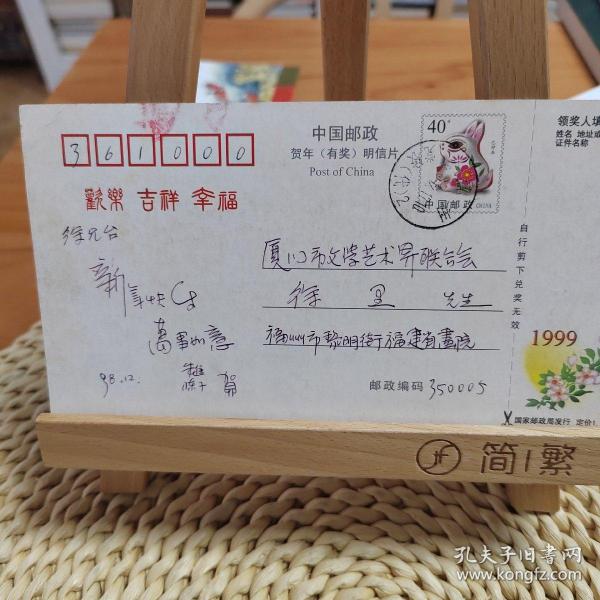 361000
中国邮政
贺年（有奖）明信片
Post of China
40分
中国邮政 CHINA
领奖人填
姓名 地址或
证件名称
歡樂 吉祥 幸福
徐兄台
新年快乐
萬事如意
98.12.
賀
厦门市文学艺术界联合会
徐里 先生
福州市黎明街福建省畫院
邮政编码 350005
自行剪下兑奖无效
1999
国家邮政局发行 定价1.
简|繁
孔夫子旧书网
www.kongfz.com